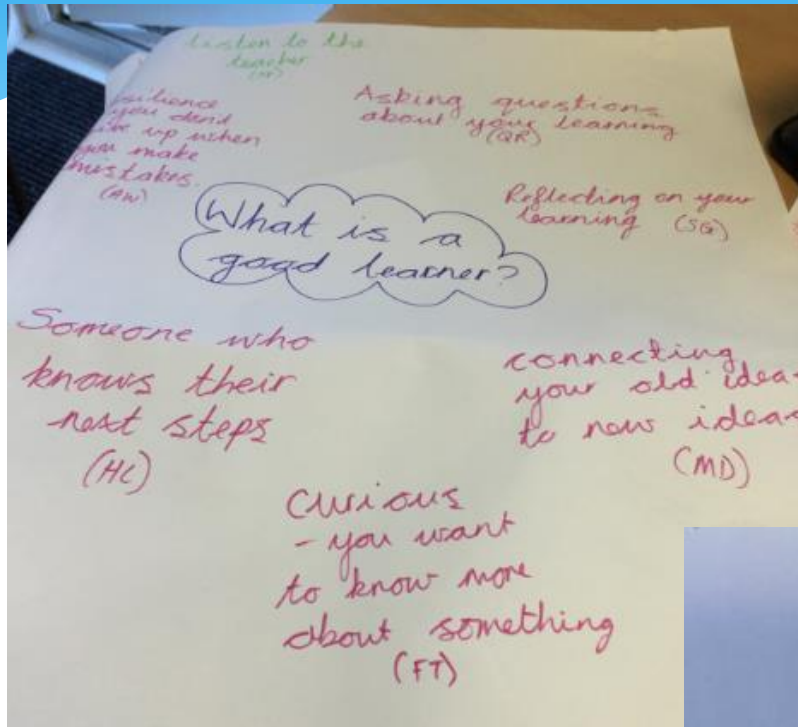 Listen to the
teacher
resilience
you dont
give up when
you make
mistakes.
(AW)
Asking questions
about your learning
(QR)
Reflecting on your
learning (SG)
What is a
good learner?
Someone who
knows their
next steps
(HL)
connecting
your old ideas
to new ideas
(MD)
curious
- you want
to know more
about something
(FT)